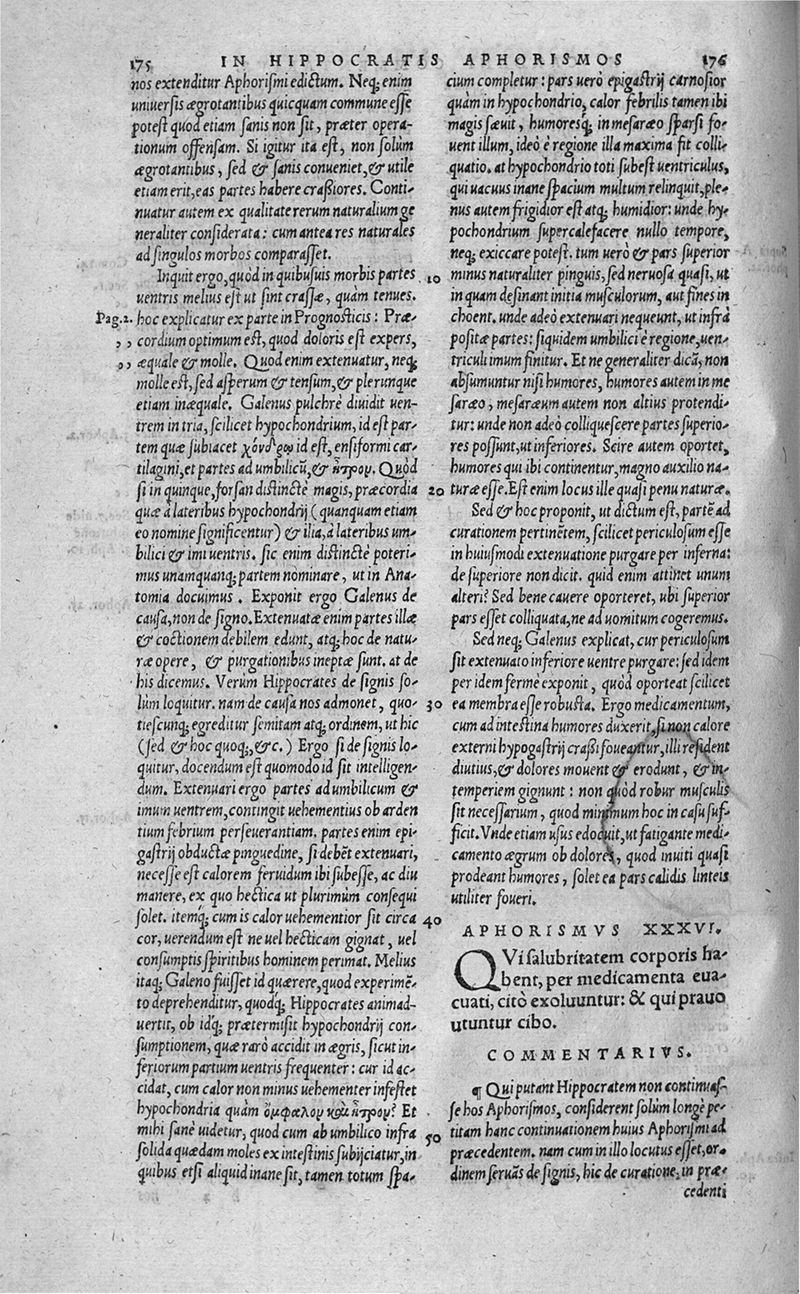 175 IN HIPPOCRATIS APHORISMOS 176
nos extenditur Aphorismi edictum. Neq; enim
uniuersis ægrotantibus quicquam commune esse
potest quod etiam sanis non sit, præter opera-
tionum offensam. Si igitur ita est, non solùm
ægrotantibus, sed & sanis conueniet, & utile
etiam erit, eas partes habere crassiores. Conti-
nuatur autem ex qualitate rerum naturalium ge
neraliter considerata: cum antea res naturales
ad singulos morbos comparasset.
Inquit ergo, quòd in quibusuis morbis partes
uentris melius est ut sint crassæ, quàm tenues.
Pag.2. hoc explicatur ex parte in Prognosticis: Præ-
,, cordium optimum est, quod doloris est expers,
,, æquale & molle. Quod enim extenuatur, neq;
molle est, sed asperum & tensum, & plerunque
etiam inæquale. Galenus pulchrè diuidit uen-
trem in tria, scilicet hypochondrium, id est par-
tem quæ subiacet χόνδρῳ id est, ensiformi car-
tilagini, et partes ad umbilicũ, & ἦτρον. Quòd
si in quinque, forsan distinctè magis, præcordia
quæ à lateribus hypochondrij (quanquam etiam
eo nomine significentur) & ilia, à lateribus um-
bilici & imi uentris. sic enim distinctè poteri-
mus unamquanq; partem nominare, ut in Ana-
tomia docuimus. Exponit ergo Galenus de
causa, non de signo. Extenuatæ enim partes illæ
& coctionem debilem edunt, atq; hoc de natu-
ræ opere, & purgationibus ineptæ sunt. at de
his dicemus. Verùm Hippocrates de signis so-
lùm loquitur. nam de causa nos admonet, quo-
tiescunq; egreditur semitam atq; ordinem, ut hic
(sed & hoc quoq;, &c.) Ergo si de signis lo-
quitur, docendum est quomodo id sit intelligen-
dum. Extenuari ergo partes ad umbilicum &
imum uentrem, contingit uehementius ob arden
tium febrium perseuerantiam. partes enim epi-
gastrij obductæ pinguedine, si debẽt extenuari,
necesse est calorem feruidum ibi subesse, ac diu
manere, ex quo hectica ut plurimùm consequi
solet. itemq; cum is calor uehementior sit circa
cor, uerendum est ne uel hecticam gignat, uel
consumptis spiritibus hominem perimat. Melius
itaq; Galeno fuisset id quærere, quod experimẽ-
to deprehenditur, quodq; Hippocrates animad-
uertit, ob idq; prætermisit hypochondrij con-
sumptionem, quæ rarò accidit in ægris, sicut in-
feriorum partium uentris frequenter: cur id ac-
cidat, cum calor non minus uehementer infestet
hypochondria quàm ὀμφαλὸν καὶ ἦτρον? Et
mihi sanè uidetur, quod cum ab umbilico infra
solida quædam moles ex intestinis subijciatur, in
quibus etsi aliquid inane sit, tamen totum spa-
cium completur: pars uerò epigastrij carnosior
quàm in hypochondrio, calor febrilis tamen ibi
magis sæuit, humoresq; in mesaræo sparsi fo-
uent illum, ideò è regione illa maxima fit colli-
quatio. at hypochondrio toti subest uentriculus,
qui uacuus inane spacium multum relinquit, ple-
nus autem frigidior est atq; humidior: unde hy-
pochondrium supercalefacere nullo tempore,
neq; exiccare potest. tum uerò & pars superior
10 minus naturaliter pinguis, sed neruosa quasi, ut
in quam desinant initia musculorum, aut fines in
choent. unde adeò extenuari nequeunt, ut infrà
positæ partes: siquidem umbilici è regione, uen-
triculi imum finitur. Et ne generaliter dicã, non
absumuntur nisi humores, humores autem in me
saræo, mesaræum autem non altius protendi-
tur: unde non adeò colliquescere partes superio-
res possunt, ut inferiores. Scire autem oportet,
humores qui ibi continentur, magno auxilio na-
20 turæ esse. Est enim locus ille quasi penu naturæ.
Sed & hoc proponit, ut dictum est, partẽ ad
curationem pertinẽtem, scilicet periculosum esse
in huiusmodi extenuatione purgare per inferna:
de superiore non dicit. quid enim attinet unum
alteri? Sed bene cauere oporteret, ubi superior
pars esset colliquata, ne ad uomitum cogeremus.
Sed neq; Galenus explicat, cur periculosum
sit extenuato inferiore uentre purgare: sed idem
per idem fermè exponit, quòd oporteat scilicet
30 ea membra esse robusta. Ergo medicamentum,
cum ad intestina humores duxerit, si non calore
externi hypogastrij crassi foueantur, illi resident
diutius, & dolores mouent & erodunt, & in-
temperiem gignunt: non quòd robur musculis
sit necessarium, quod minimum hoc in casu suf-
ficit. Vnde etiam usus edocuit, ut fatigante medi-
camento ægrum ob dolores, quod inuiti quasi
prodeant humores, solet ea pars calidis linteis
utiliter foueri.
40 APHORISMVS XXXVI.
QVi salubritatem corporis ha-
bent, per medicamenta eua-
cuati, citò exoluuntur: & qui prauo
utuntur cibo.
COMMENTARIVS.
¶ Qui putant Hippocratem non continuas-
se hos Aphorismos, considerent solùm longè pe-
titam hanc continuationem huius Aphorismi ad
50 præcedentem. nam cum in illo locutus esset, or-
dinem seruãs de signis, hic de curatione, in præ-
cedenti